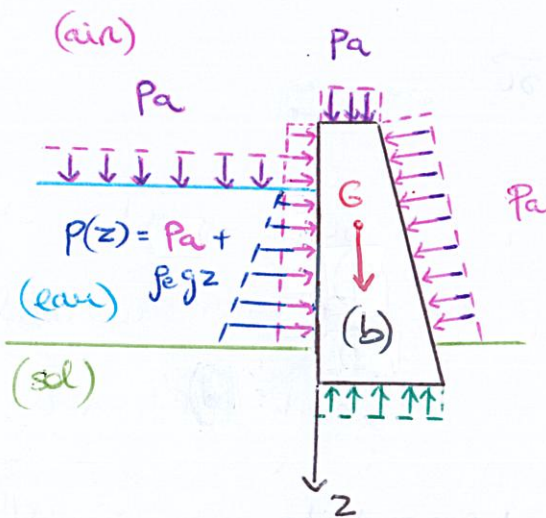 (air)
Pa
Pa
G
Pa
P(z) = Pa +
ρegz
(eau)
(b)
(sol)
z